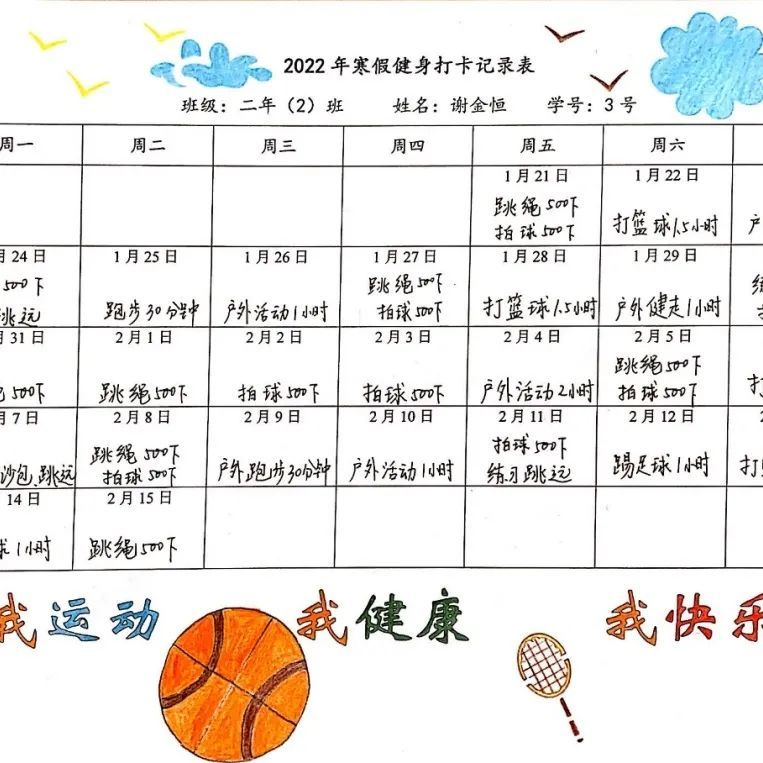 2022 年寒假健身打卡记录表
班级：二年（2）班 姓名：谢金恒 学号：3 号
周一 周二 周三 周四 周五 周六
1 月 21 日 1 月 22 日
跳绳 500下
拍球 500下 打篮球1.5小时
月 24 日 1 月 25 日 1 月 26 日 1 月 27 日 1 月 28 日 1 月 29 日
500下 跳绳500下
跳远 跑步30分钟 户外活动1小时 拍球500下 打篮球1.5小时 户外健走1小时
月 31 日 2 月 1 日 2 月 2 日 2 月 3 日 2 月 4 日 2 月 5 日
跳绳500下
500下 跳绳500下 拍球500下 拍球500下 户外活动2小时 拍球500下
月 7 日 2 月 8 日 2 月 9 日 2 月 10 日 2 月 11 日 2 月 12 日
跳绳500下 拍球500下
沙包、跳远 拍球500下 户外跑步30分钟 户外活动1小时 练习跳远 踢足球1小时
14 日 2 月 15 日
球1小时 跳绳500下
我运动 我健康 我快乐